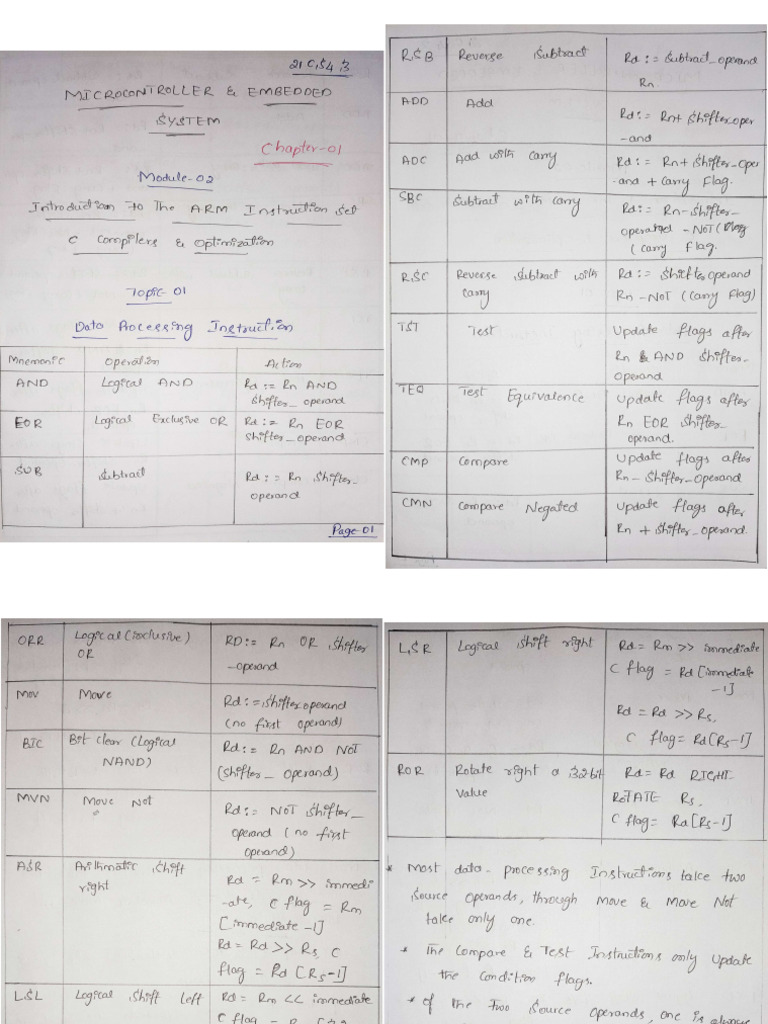 21CS43
MICROCONTROLLER & EMBEDDED
SYSTEM
Chapter-01
Module-02
Introduction to The ARM Instruction Set
C Compilers & Optimization
Topic-01
Data Processing Instruction
Mnemonic Operation Action
AND Logical AND Rd := Rn AND
Shifter_operand
EOR Logical Exclusive OR Rd := Rn EOR
Shifter_operand
SUB Subtract Rd := Rn Shifter_
operand
Page-01
RSB Reverse Subtract Rd := Subtract_operand
Rn.
ADD Add Rd := Rn + Shifter oper
-and
ADC Add with Carry Rd := Rn + Shifter_oper
-and + Carry Flag.
SBC Subtract with carry Rd := Rn - Shifter_
operand - NOT (
(Carry Flag.
RSC Reverse Subtract with Rd := Shifter operand
Carry Rn - NOT (Carry Flag)
TST Test Update flags after
Rn & AND Shifter_
operand
TEQ Test Equivalence Update flags after
Rn EOR Shifter_
operand.
CMP Compare Update flags after
Rn - Shifter_operand
CMN Compare Negated Update flags after
Rn + Shifter_operand.
ORR Logical (inclusive) RD := Rn OR Shifter
OR _operand
Mov Move Rd := Shifter operand
(no first operand)
BIC Bit Clear (Logical Rd := Rn AND NOT
NAND) (Shifter_ operand)
MVN Move Not Rd := NOT Shifter_
operand (no first
operand)
ASR Arithmatic Shift Rd = Rm >> immedi
right -ate, C flag = Rm
[immediate -1]
Rd = Rd >> Rs, C
flag = Rd [Rs-1]
LSL Logical Shift Left Rd = Rm << immediate
C flag =
LSR Logical Shift right Rd = Rm >> immediate
C flag = Rd [immediate
-1]
Rd = Rd >> Rs,
C flag = Rd [Rs-1]
ROR Rotate right a 32bit Rd = Rd RIGHT
Value ROTATE Rs,
C flag = Rd [Rs-1]
* Most data-processing Instructions take two
Source Operands, through Move & Move Not
take only one.
* The Compare & Test Instructions only Update
the Condition flags.
* Of the Two Source Operands, one is always